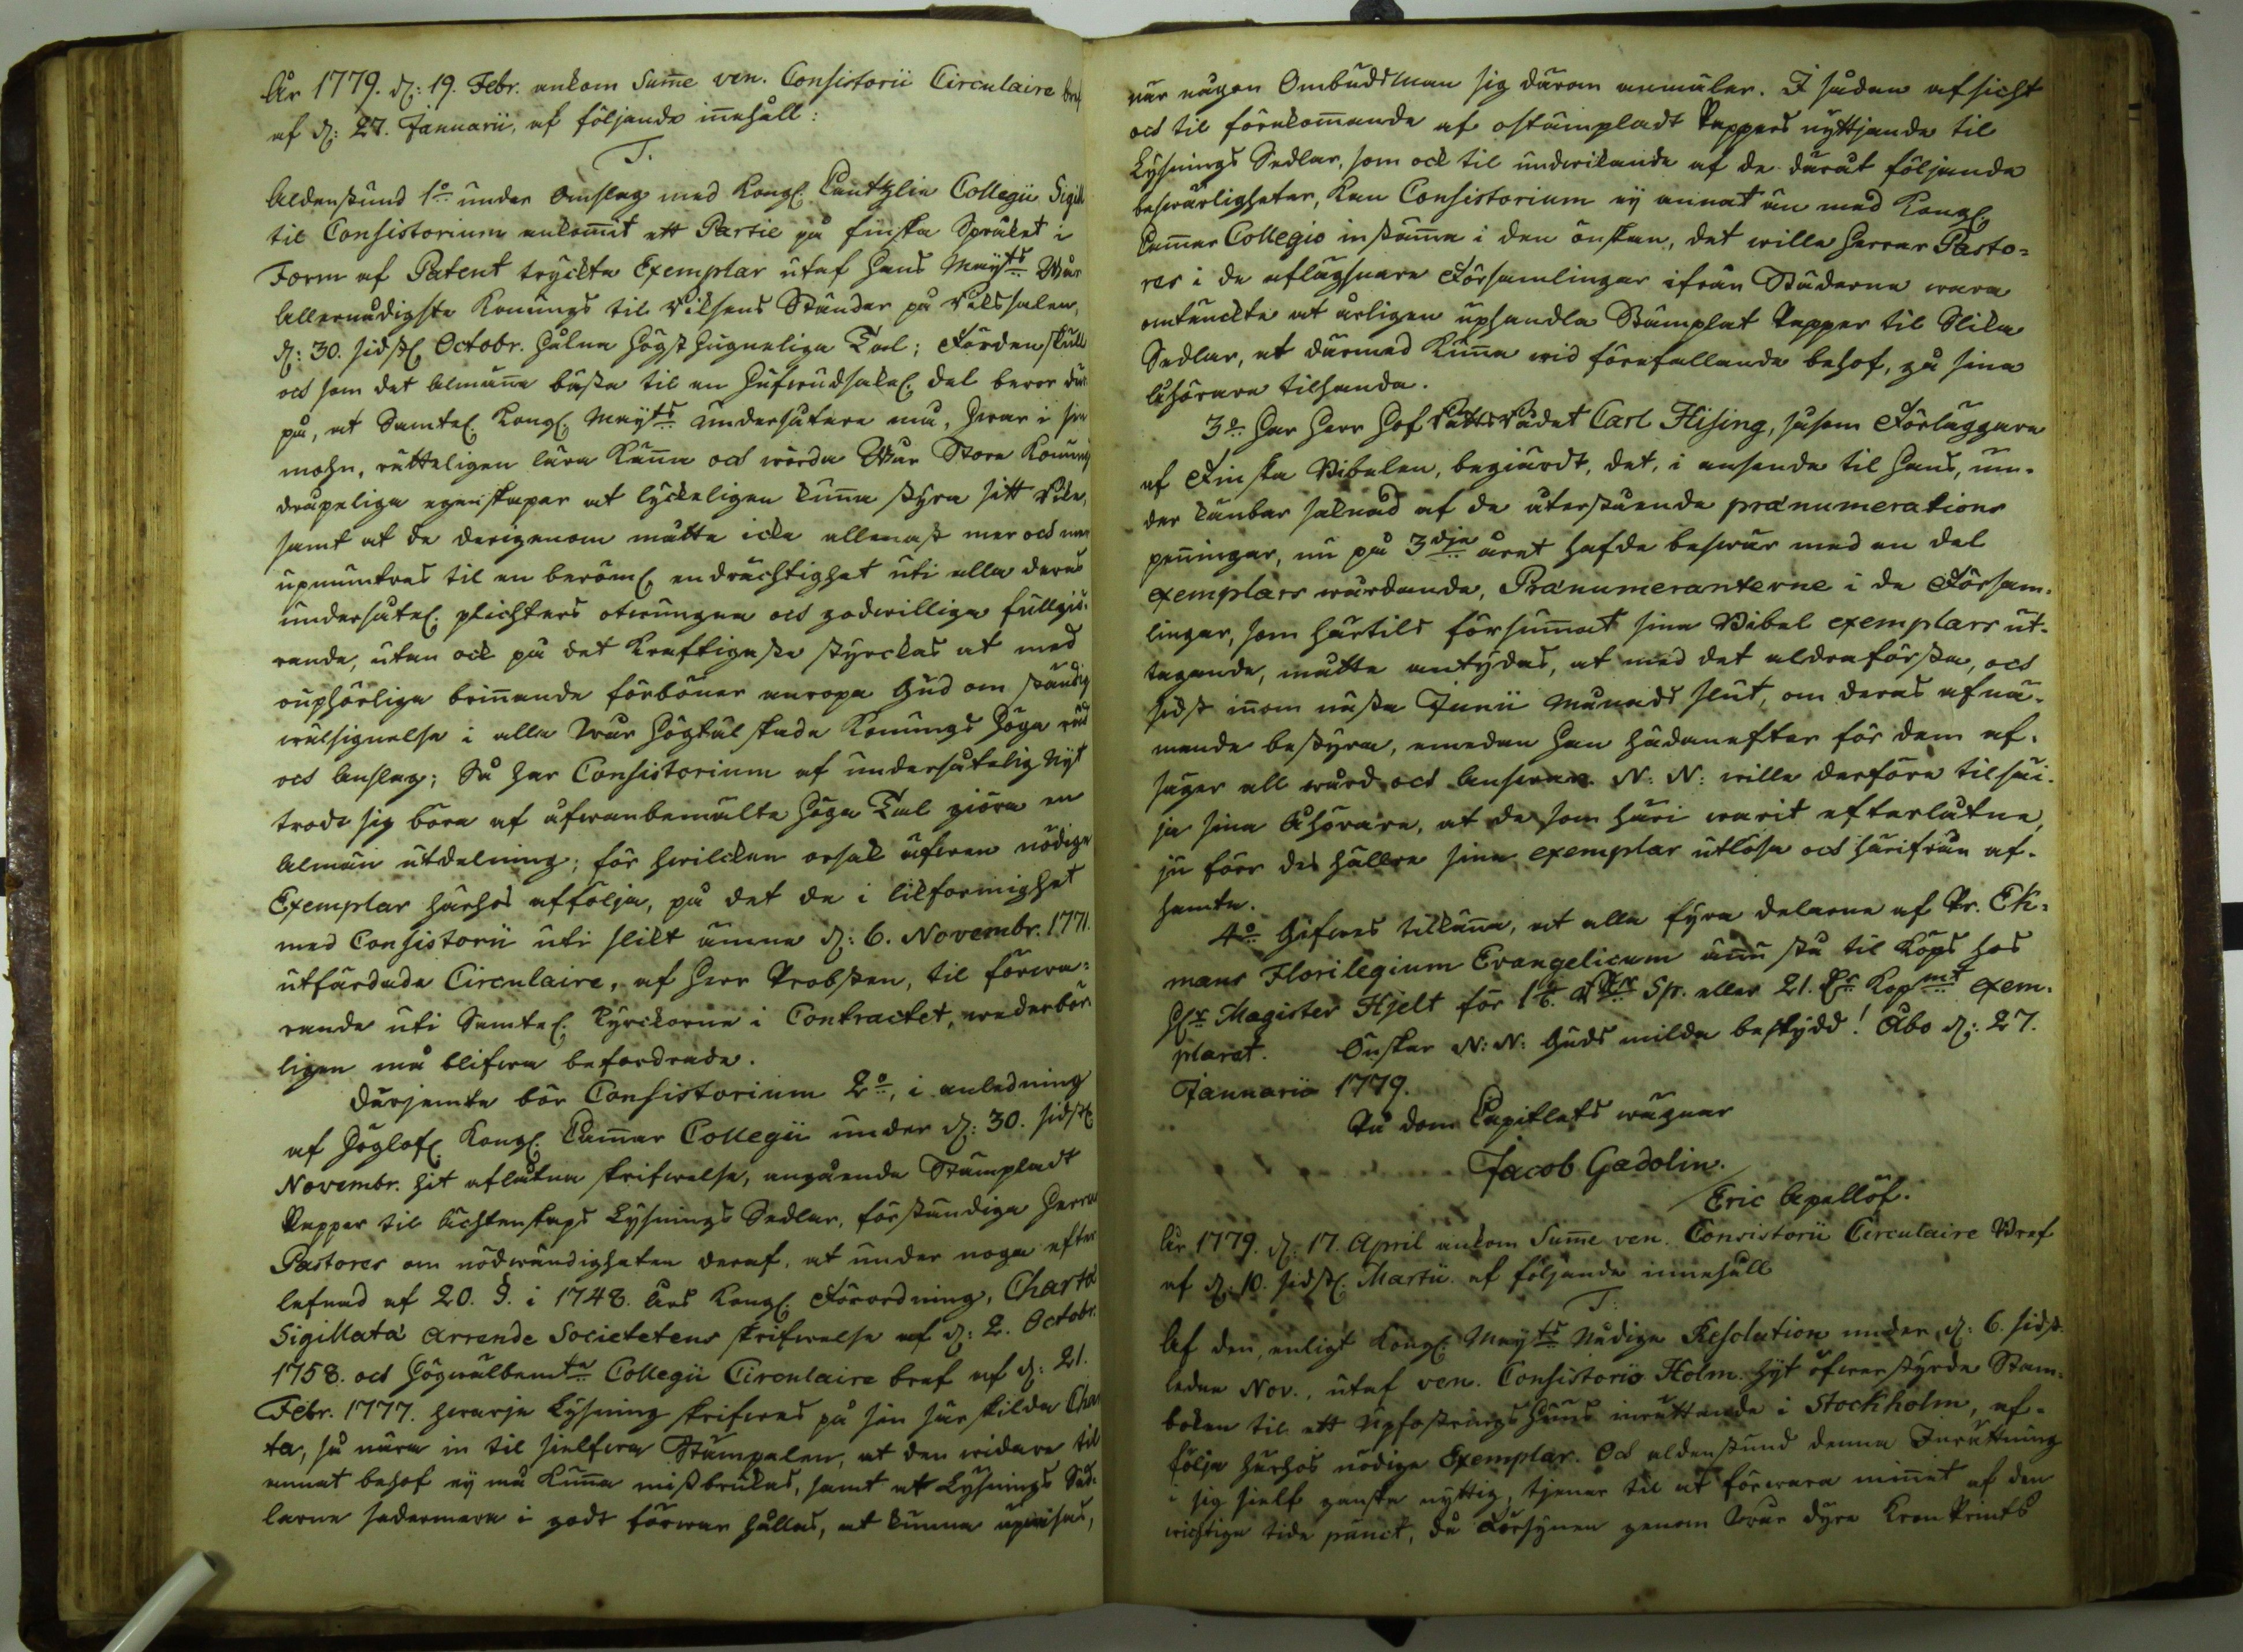 År 1779. d: 19. Febr. ankom Sume ven. Consistorii Circulaire bref
af d: 27. Januarii, af följande inehåll:
T.
Aldenstund 1o under omslag med Kongl. Cantzlie Collegii Sigill
til Consistorium ankommit ett Partie på finska Språket i
Form af Patent tryckte Exemplar utaf Hans Mayts Wår
Allernådigste Konungs til Riksens Ständer på Rikssalen,
d: 30. sidstl Octobr. hålna Högst hugneliga Tal; Fördenskull
och som det Almänna bästa til en hufwudsakel. del beror der
på, at Samtel. Kongl. Mayts undersåtare må, hwar i sin
mohn, rätteligen lära känna och wörda Wår Store Konungs
dråpeliga egenskaper at lyckeligen kunna styra sitt Rike,
samt at de derigenom måtte icke allenast mer och mer
upmuntras til en berömel endrächtighet uti alla deras
undersåtel. plichters otwungna och godwilliga fullgiö-
rande, utan ock på det kraftigaste styrckas at med
ouphörliga brinnande förböner anropa Gud om ständig
wälsignelse i alla Wår Högtälskade Konungs Höga råd
och Anslag; Så har Consistorium af undersåtelig nyt
trodt sig böra af åfwanbemälte Höga Tal giöra en
Almän utdelning; för hwilcken orsak äfwen nödige
Exemplar härhos affölja, på det de i likformighet
med Consistorii uti slikt ämne d: 6. Novembr. 1771.
utfärdade Circulaire, af Herr Probsten, til förwa-
rande uti Samtel. Kyrckorne i Contractet, wederbör
ligen må blifwa befordrade.
Därjemte bör Consistorium 2o, i anledning
af Höglofl. Kongl. Cammar Collegii under d: 30. sidstl
Novembr. hit aflåtna skrifwelse, angående Stämpladt
Papper til Ächtenskaps Lysnings Sedlar, förständiga Herrar
Pastores om nödwändigheten deraf, at under noga efter
lefnad af 20. §. i 1748. Års Kongl. Förordning, Charta
Sigillata Arrende Societetens skrifwelse af d: 2. Octobr.
1758. och Högwälbemte Collegii Circulaire bref af d: 21.
Febr. 1777. hwarje Lysning skrifwes på sin särskilda Char
ta, så nära in til sielfwa Stämpelen, at den widare til
annat behof ej må kunna missbrukas, samt att Lysnings Sed-
larne sedermera i godt förwar hållas, at kunna upwisas,
när någon Ombudsman sig därom anmäler. I sådan afsicht
och til förekommande af ostämpladt Pappers nyttjande til
Lysnings Sedlar, som ock til undwikande af de däraf följande
beswärligheter, kan Consistorium ej annat än med Kongl.
Cammar Collegio instämma i den önskan, det wille Herrar Pasto-
res i de aflägsnare Församlingar ifrån Städerne wara
omtänckte at årligen uphandla Stämplat Papper til Slika
Sedlar, at därmed kunna wid förefallande behof, gå sina
Åhörare tilhanda.
3o Har Herr HofRättsRådet Carl Hising, såsom Förläggare
af Finska Bibelen, begiärdt, det, i anseende til Hans, un-
der känbar saknad af de återstående prænumerations
penningar, nu på 3dje året hafde beswär med en del
exemplars wårdande, Prænumeranterne i de Försam-
lingar, som härtils försummat sina Bibel exemplars ut-
tagande, måtte antydas, at med det aldraförsta, och
sidst innom nästa Junii Månads slut, om deras afnä-
mande bestyra, emedan Han hädanefter för dem af-
säger all wård och Answar. N: N: wille derföre tilsäi-
ja sina Åhörare, at de som häri warit efterlåtne,
ju förr des hällre sina exemplar utlösa och härifrån af-
hemta.
4o Gifwes tilkänna, at alla fyra delarne af Pr. Ek-
mans Florilegium Evangelicum ännu stå til köps hos
Hr Magister Hjelt för Sp. eller 21. Dr Kopmt exem-
plaret. Önskar N: N: Guds milda beskydd! Åbo d: 27.
Januario 1779.
På Dom Capitlets wägnar
Jacob Gadolin.
Eric Apellöf.
År 1779. d: 17. April ankom Sume ven. Consistorii Circulaire Bref
af d: 10. sidstl. Martii af följande innehåll
T:
Af den, enligt Kongl: Mayts Nådiga Resolution under d: 6. sidst.
ledne Nov., utaf ven. Consistorio Holm. hyt öfwerstyrde Stam-
boken til ett Upfostrings Huus inrättande i Stockholm, af-
följa härhos nödige Exemplar. Och aldenstund denna Inrättning
i sig sielf ganska nyttig, tjenar til at förwara minnet af den
wichtiga tide punct, då Försynen genom Wår dyre Kron Prints